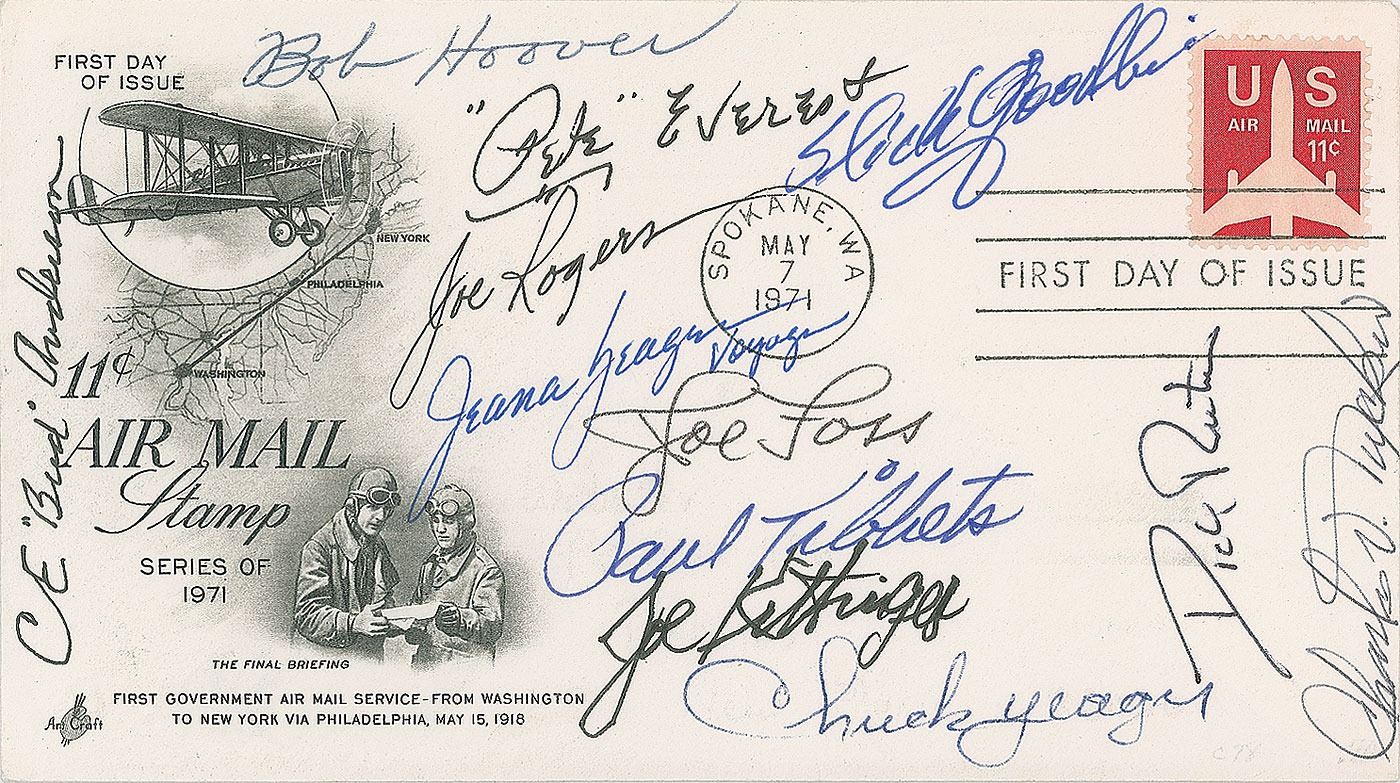 FIRST DAY
OF ISSUE
Bob Hoover
"Pete" Everest
Slick Goodlin
US
AIR MAIL
11¢
SPOKANE, WA
MAY
7
1971
FIRST DAY OF ISSUE
NEW YORK
PHILADELPHIA
WASHINGTON
Joe Rogers
Jeana Yeager
Voyager
Joe Foss
Paul Tibbets
Joe Kittinger
Chuck Yeager
Dick Rutan
CE "Bud" Anderson
11¢
AIR MAIL
Stamp
SERIES OF
1971
THE FINAL BRIEFING
FIRST GOVERNMENT AIR MAIL SERVICE-FROM WASHINGTON
TO NEW YORK VIA PHILADELPHIA, MAY 15, 1918
Art Craft